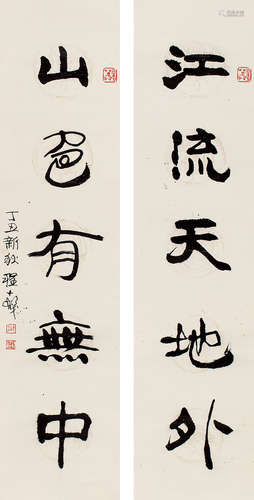 江流天地外
山色有無中
丁丑新秋程十髮